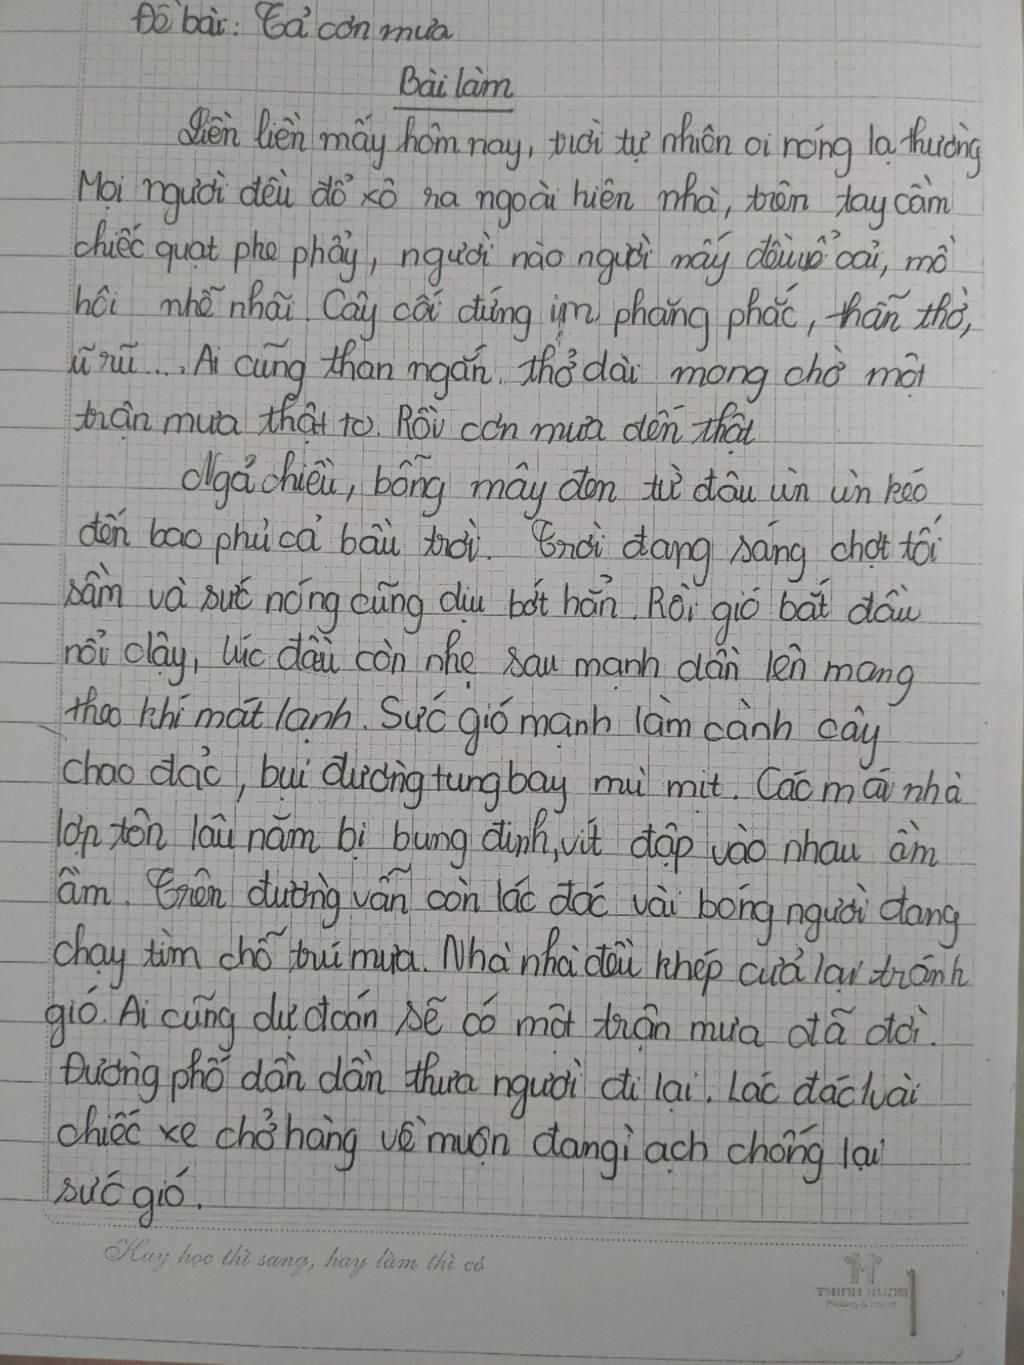 Đề bài: Tả cơn mưa
Bài làm
Liên liền mấy hôm nay, trời tự nhiên oi nóng lạ thường
Mọi người đều đổ xô ra ngoài hiên nhà, trên tay cầm
chiếc quạt phe phẩy, người nào người nấy đều oải, mồ
hôi nhễ nhãi. Cây cối đứng im phăng phắc, thẫn thờ,
ũ rũ.... Ai cũng than ngắn thở dài mong chờ một
trận mưa thật to. Rồi cơn mưa đến thật
Ngả chiều, bỗng mây đen từ đâu ùn ùn kéo
đến bao phủ cả bầu trời. Trời đang sáng chợt tối
sầm và sức nóng cũng dịu bớt hẳn. Rồi gió bắt đầu
nổi dậy, lúc đầu còn nhẹ sau mạnh dần lên mang
theo khí mát lạnh. Sức gió mạnh làm cành cây
chao đảc, bụi đường tung bay mù mịt. Các mái nhà
lợp tôn lâu năm bị bung đinh, vít đập vào nhau ầm
ầm. Trên đường vẫn còn lác đác vài bóng người đang
chạy tìm chỗ trú mưa. Nhà nhà đều khép cửa lại tránh
gió. Ai cũng dự đoán sẽ có một trận mưa đã đời.
Đường phố dần dần thưa người đi lại. Lác đác vài
chiếc xe chở hàng về muộn đang ì ạch chống lại
sức gió.
Hay học thì sang, hay làm thì có